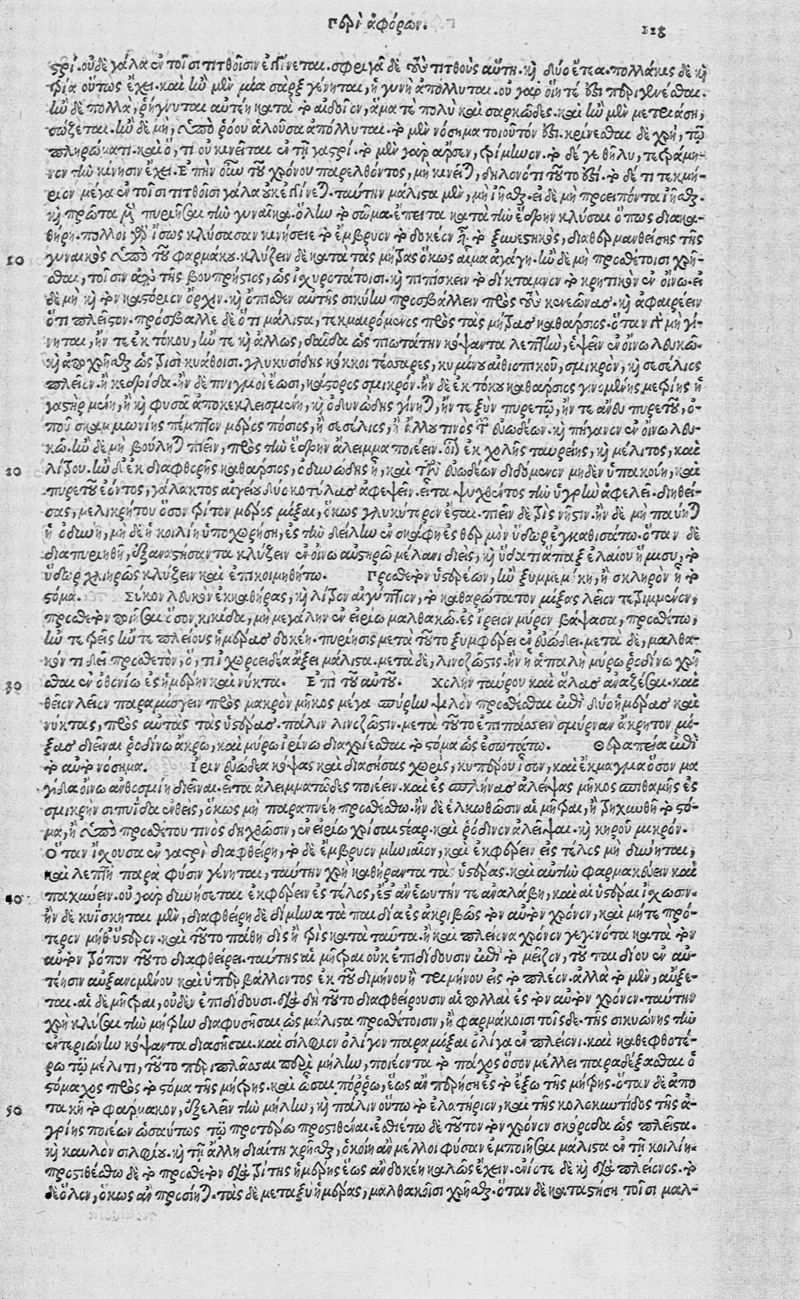 Περὶ ἀφόρων. 118
στρί. οὐδὲ γάλα ἐν τοῖσι τιτθοῖσιν ἐγγίνεται. σφριγᾷ δὲ τοὺς τιτθοὺς αὕτη. καὶ δύο ἔτεα. πολλάκις δὲ καὶ
τρία οὕτως ἔχει. καὶ ἢν μὲν μία σὰρξ γένηται, ἡ γυνὴ ἀπόλλυται. οὐ γὰρ οἵη τέ ἐστι περιγενέσθαι.
ἢν δὲ πολλαὶ, ῥήγνυται αὐτέῃ κατὰ τὸ αἰδοῖον, αἷμα τε πολὺ καὶ σαρκῶδες. καὶ ἢν μὲν μετριάσῃ,
σώζεται. ἢν δὲ μὴ, ὑπὸ ῥόου ἁλοῦσα ἀπόλλυται. τὸ μὲν νόσημα τοιοῦτόν ἐστι. κρίνεσθαι δὲ χρὴ, τῷ
πληρώματι. καὶ ὅ, τι οὐ κινεῖται ἐν τῇ γαστρί. τὸ μὲν γὰρ ἄρσεν, τρίμηνον. τὸ δέ γε θῆλυ, τετράμη-
νον τὴν κίνησιν ἔχει. ἐπὴν ὅτου τοῦ χρόνου παρελθόντος, μὴ κινεῖται, δηλονότι τοῦτό ἐστι. τὸ δέ τι τεκμή-
ριον μέγα ἐν τοῖσι τιτθοῖσι γάλα οὐκ ἐγγίνεται. ταύτην μάλιστα μὲν, μὴ ἰῆσθαι. εἰ δὲ μὴ προειπόντα ἰῆσθαι.
καὶ πρῶτα μὲν πυριῆσαι τὴν γυναῖκα. ὅλην τὸ σῶμα. ἔπειτα κατὰ τὴν ἕδρην κλύσαι ὅπως διακα-
θήρῃ. πολλοὶ γὰρ ἴσως κλύσασαν κινήσειε τὸ ἔμβρυον τὸ δοκέον εἶναι. τὸ ξυνεστηκὸς, διαθερμανθείσης τῆς
10 γυναικὸς ὑπὸ τοῦ φαρμάκου. κλύζειν δὲ κατὰ τὰς μήτρας ὅκως αἷμα ἀγάγῃ. ἢν δὲ μὴ προσθέτοισι χρῆ-
σθαι, τοῖσιν ἀπὸ τῆς βουπρήστιος, ὡς ἰσχυροτάτοισι. καὶ πιπίσκειν τὸ δίκταμνον τὸ κρητικὸν ἐν οἴνῳ. εἰ
δὲ μὴ καὶ τὸν καστόριον ὄρχιν. καὶ ὄπισθεν αὐτῆς σικύην προσβάλλειν πρὸς τοὺς κενεῶνας. καὶ ἀφαιρέειν
ὅτι πλεῖστον. πρόσβαλλε δὲ ὅτι μάλιστα, τεκμαιρόμενος πρὸς τὰς μήτρας καθαίρησιος. ὅταν δὲ μὴ γί-
νηται, ἤν τε ἐκ τόκου, ἤν τε καὶ ἄλλως, δαῖδα ὡς πιωτάτην κόψαντα λεπτὴν, ἑψεῖν ἐν οἴνῳ λευκῷ.
καὶ ἀποχρῆσθαι ὡς τρισὶ κυάθοισι. γλυκυσίδης κόκκοι τέσσαρες, κυμίνου αἰθιοπικοῦ, σμικρὸν, καὶ σεσέλιος
πλεῖον. ἢ κεδρίδα. ἢν δὲ πνιγμοὶ ἔωσι, κάστορος σμικρόν. ἢν δὲ ἐκ τόκου καθαρσιος γινομένης μεφίης ἡ
γαστὴρ μένῃ, ἢ καὶ φῦσα ἀποκεκλεισμένη, καὶ ὀδυνώδης γίνηται, ἤν τε ξὺν πυρετῷ, ἤν τε ἄνευ πυρετοῦ, ὀ-
ποῦ σκαμμωνίης πέμπτον μέρος πόσιος, ἢ σεσέλιος, ἢ ἄλλου τινὸς τῶν εὐωδέων. καὶ πήγανον ἐν οἴνῳ λευ-
κῷ. ἢν δὲ μὴ βούληται πιεῖν, πρὸς τὴν ἕδρην ἄλειμμα ποιέειν. οἷον ἐκ χολῆς ταυρείης, καὶ μέλιτος, καὶ
20 νίτρου. ἢν δὲ ἐκ διαφθορῆς καθαρσιος, ὀδυνώδης ᾖ, καὶ τῶν εὐωδέων διδομένων μηδὲν ὑπακούῃ, καὶ
πυρετοῦ ἐόντος, γάλακτος αἰγείου δύο κοτύλας ἀφεψεῖν. εἶτα ψυχθέντος τὴν ὑγρὴν ἀφελεῖ. διηθεί-
σας, μελικρήτου ὅσον τρίτον μέρος μίξαι, ὅκως γλυκύτερον ἔσται. πιεῖν δὲ τρὶς νῆστιν. ἢν δὲ μὴ παύηται
ἡ ὀδύνη, μηδὲ ἡ κοιλίη ὑποχωρήσῃ, ἐς τὴν δείλην ἐν σκάφῃ ἐς θερμὸν ὕδωρ ἐγκαθισάτω. ὅταν δὲ
διαπυριηθῇ, ἐξαναστήσαντα κλύζειν ἐν οἴνῳ αὐστηρῷ μέλανι διεὶς, καὶ ὕδατι ἅπαξ ἐλαίου ἥμισυ, τὸ
ὕδωρ χλιηρῶς κλύζειν καὶ ἐπικοιμηθήτω. Πρόσθετον ὑστερέων, ἢν ξυμμεμύκῃ, ἢ σκληρὸν ᾖ τὸ
στόμα. Σῦκον λευκὸν ἐκκαθήρας, καὶ νίτρον αἰγύπτιον, τὸ καθαρώτατον μίξας λεῖον τετριμμένον,
πρόσθετον ποιῆσαι ὅσον κικίδα, μὴ μεγάλην ἐν εἰρίῳ μαλθακῷ. ἐς ἴρινον μύρον βάψασα, προσθέτω,
ἤν τε τρεῖς ἤν τε πλείους ἡμέρας δοκέῃ. πυρίησις μετὰ τοῦτο ξυμφέρει εὐώδει. μετὰ δὲ, μαλθα-
κόν τι δεῖ προσθετὸν, ὅ, τι ἰχωροειδέα ἄξει μάλιστα. μετὰ δὲ, λινόζωστις. ἢν ᾖ ἁπαλὴ μύρῳ ῥοδίνῳ χρῆ
30 σθαι ἐν ὀθονίῳ ἐς ἡμέρην καὶ νύκτα. Ἐπὶ τοῦ αὐτοῦ. Χολὴν ταύρου καὶ ἅλας ἀναζέσαι. καὶ
θεῖον λεῖον παραμίσγειν πρὸς μακρὸν μῆκος μέγα πύρην ψιλὸν προσθέσθαι ἐπὶ δύο ἡμέρας καὶ
νύκτας, πρὸς αὐτὰς τὰς ὑστέρας. πάλιν λινόζωστιν. μετὰ τοῦτο ἐπιπάσσειν σμύρναν ἄκρητον μί-
ξας διεῖναι ῥοδίνῳ ἄκρῳ, καὶ μύρῳ ἰρίνῳ διαχρίεσθαι τὸ στόμα ὡς ἐσωτάτω. Θεραπεία ἐπὶ
τὸ αὐτὸ νόσημα. Ἴριν εὐώδεα κόψας καὶ διασήσας χωρὶς, κυπέρου ἴσον, καὶ ἔκμαγμα ὅσον μα
γίδα οἴνῳ ἀνθοσμίῃ διεῖναι. εἶτα ἀλειμματῶδες ποιέειν. καὶ ἐς πλῆνας ἀλείψας μῆκος σπιθαμῆς ἐς
σμικρὴν σιπυΐδα ἐνθεὶς, ὅκως μὴ παραπνέῃ προσθέσθω. ἢν δὲ ἑλκωθῶσιν αἱ μῆτραι, ἢ τρηχυνθῇ τὸ στό-
μα, ἢ ὑπὸ προσθέτου τινὸς δηχθῶσιν, ἐν εἰρίῳ χρίσαι στέαρ. καὶ ῥόδινον ἀλεῖψαι. καὶ κηροῦ μικρόν.
Ὅταν ἴσχουσα ἐν γαστρὶ διαφθείρῃ, τὸ δὲ ἔμβρυον μηνιαῖον, καὶ ἐκφέρειν ἐς τέλος μὴ δύνηται,
καὶ λεπτὴ παρὰ φύσιν γένηται, ταύτην χρὴ καθήραντα τὰς ὑστέρας. καὶ αὐτὴν φαρμακεύειν καὶ
40 παχύνειν. οὐ γὰρ δυνήσεται ἐκφέρειν ἐς τέλος, ἔστ᾽ ἂν ἑωυτήν τε ἀναλάβῃ, καὶ αἱ ὑστέραι ἰσχύωσιν.
ἢν δὲ κυΐσκηται μὲν, διαφθείρῃ δὲ δίμηνα τὰ παιδία ἐς ἀκριβῶς τὸν αὐτὸν χρόνον, καὶ μήτε πρό-
τερον μήθ᾽ ὕστερον. καὶ τοῦτο πάθῃ δὶς ἢ τρὶς κατὰ ταῦτα. ἢ καὶ πλείονα χρόνον γεγνότα κατὰ τὸν
αὐτὸν τρόπον τοῦτο διαφθείρει. ταύτης αἱ μῆτραι οὐκ ἐπιδίδουσιν ἐπὶ τὸ μεῖζον, τοῦ παιδίου ἐν αὐ-
τέῃσιν αὐξανομένου καὶ ὑπερβάλλοντος ἐκ τοῦ διμήνου ἢ τριμήνου εἰς τὸ πλέον. ἀλλὰ τὸ μὲν, αὔξε-
ται. αἱ δὲ μῆτραι, οὐδὲν ἐπιδίδουσι. διὰ δὴ τοῦτο διαφθείρουσιν αἱ πολλαὶ ἐς τὸν αὐτὸν χρόνον. ταύτην
χρὴ κλύσαι τὴν μήτρην διαφυσῆσαι ὡς μάλιστα προσθέτοισιν, ἢ φαρμάκοισι τοῖσδε. τῆς σικυώνης τὴν
ἐντεριώνην κόψαντα διασῆσαι. καὶ σίλφιον ὀλίγον παραμίξαι ὀλίγα ἐν πλείονι. καὶ καθεφθοτέ-
ρῳ τῷ μέλιτι, τοῦτο περιπλάσαι περὶ μήλην, ποιέοντα τὸ πάχος ὅσον μέλλει παραδέξασθαι ὁ
στόμαχος πρὸς τὸ στόμα τῆς μήτρης. καὶ ὦσαι πόῤῥω, ἕως ἂν περήσῃ ἐς τὸ ἔξω τῆς μήτρης. ὅταν δὲ ἀπο
50 τακῇ τὸ φάρμακον, ἐξελεῖν τὴν μήλην, καὶ πάλιν οὕτω τὸ ἐλατήριον, καὶ τῆς κολοκυντίδος τῆς ἀ-
γρίης ποιέων ὡσαύτως τῷ προτέρῳ προστιθέναι. ἐσθιέτω δὲ τοῦτον τὸν χρόνον σκόροδα ὡς πλεῖστα.
καὶ καυλὸν σιλφίου. καὶ τῇ ἄλλῃ διαίτῃ χρῆσθαι, ὁκοίη ἂν μέλλοι φῦσαν ἐμποιῆσαι μάλιστα ἐν τῇ κοιλίῃ.
προστιθέσθω δὲ τὸ πρόσθετον διὰ τρίτης ἡμέρης ἕως ἂν δοκέῃ καλῶς ἔχειν. ἐνίοτε δὲ καὶ διὰ πλείονος. τὸ
δὲ ὅλον, ὅκως ἂν προσίηται. τὰς δὲ μεταξὺ ἡμέρας, μαλθακοῖσι χρῆσθαι. ὅταν δὲ καταστήσῃ τοῖσι μαλ-